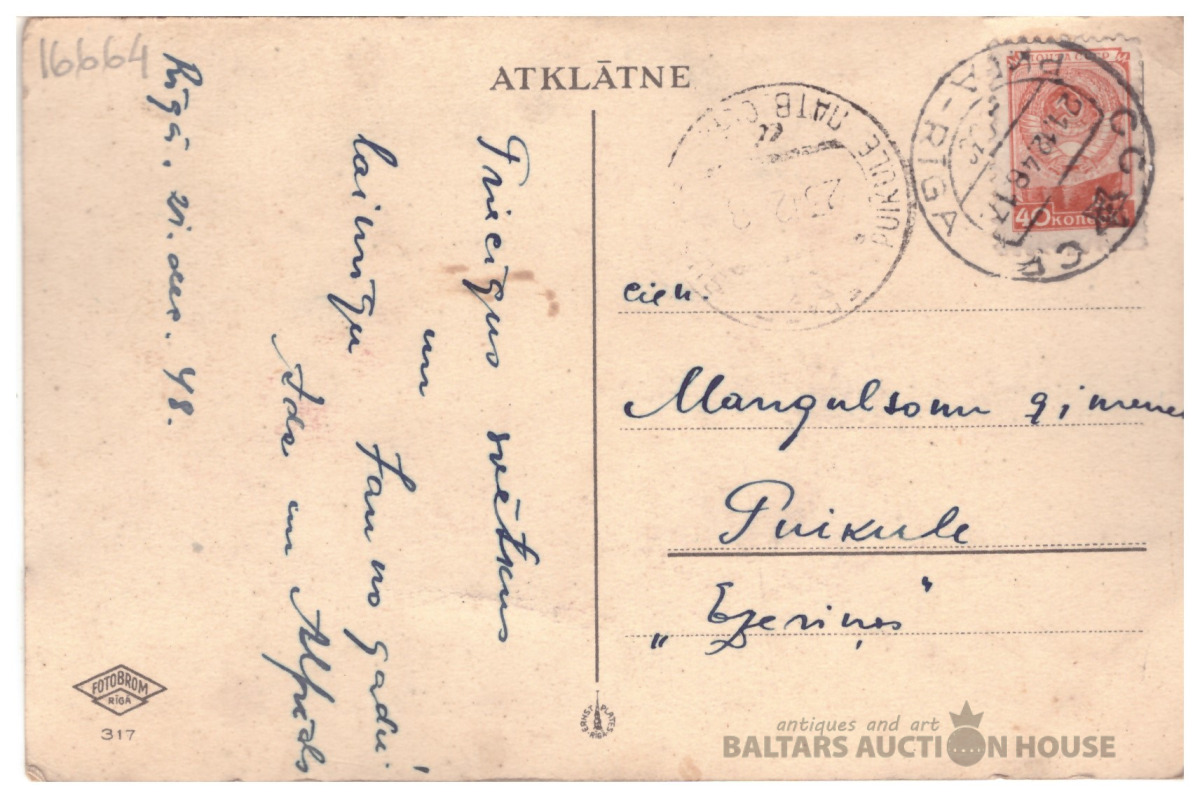 16664
ATKLĀTNE
Rīgā, 21. dec. 48.
Priecīgus svētkus
un
laimīgu Jauno gadu!
Ida un Alfreds
ПОЧТА СССР
40 КОПЕЕК
РИГА - RIGA
CCCP
21.12.48
PUIKULE ЛАТВ. С
23.12
cien.
Mangulsonu ģimenei
Puikule
„Ezeriņos"
FOTOBROM
RĪGĀ
317
ERNST PLATES RIGA
antiques and art
BALTARS AUCTION HOUSE